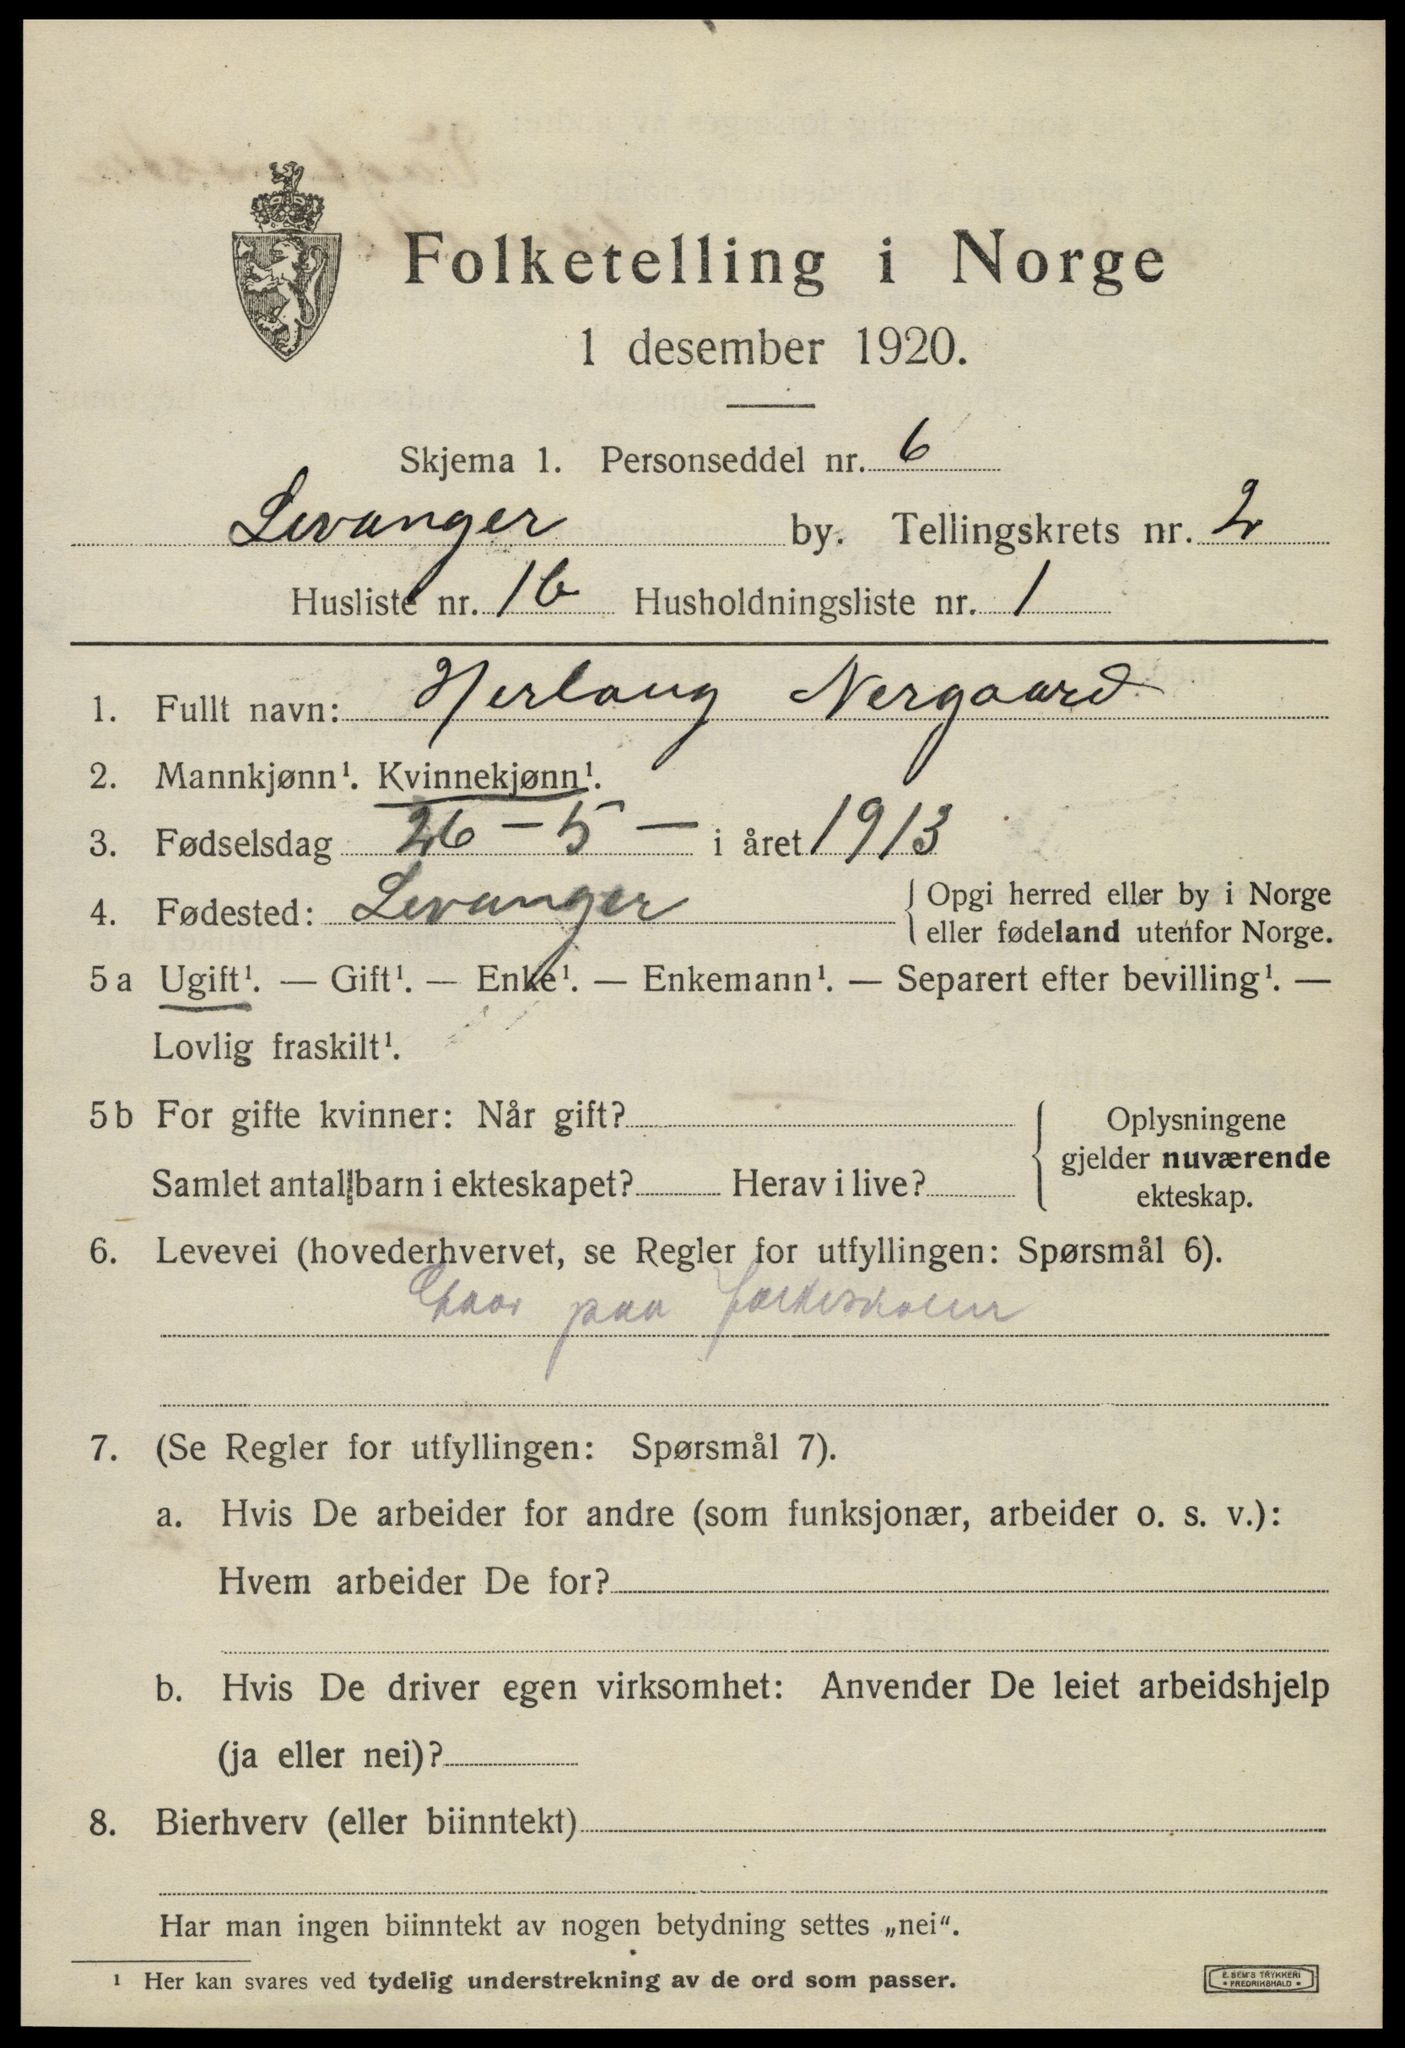 Folketelling i Norge
1 desember 1920.
Skjema 1. Personseddel nr. 6
Levanger by. Tellingskrets nr. 2
Husliste nr. 16 Husholdningsliste nr. 1
1. Fullt navn: Herlaug Nergaard
2. Mannkjønn¹. Kvinnekjønn¹.
3. Fødselsdag 26 - 5 - i året 1913
4. Fødested: Levanger { Opgi herred eller by i Norge
eller fødeland utenfor Norge.
5 a Ugift¹. — Gift¹. — Enke¹. — Enkemann¹. — Separert efter bevilling¹. —
Lovlig fraskilt¹.
5 b For gifte kvinner: Når gift? { Oplysningene
gjelder nuværende
Samlet antall barn i ekteskapet? Herav i live? ekteskap.
6. Levevei (hovederhvervet, se Regler for utfyllingen: Spørsmål 6).
paa
7. (Se Regler for utfyllingen: Spørsmål 7).
a. Hvis De arbeider for andre (som funksjonær, arbeider o. s. v.):
Hvem arbeider De for?
b. Hvis De driver egen virksomhet: Anvender De leiet arbeidshjelp
(ja eller nei)?
8. Bierhverv (eller biinntekt)
Har man ingen biinntekt av nogen betydning settes „nei“.
¹ Her kan svares ved tydelig understrekning av de ord som passer.
E. SEM'S TRYKKERI
• FREDRIKSHALD •